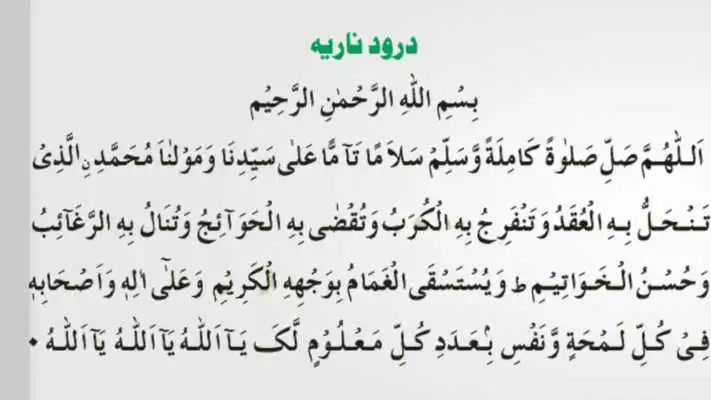 درود ناریه
بِسْمِ اللهِ الرَّحْمٰنِ الرَّحِیْمِ
اَللّٰهُمَّ صَلِّ صَلٰوةً كَامِلَةً وَّسَلِّمْ سَلَامًا تَآمًّا عَلٰی سَیِّدِنَا وَمَوْلٰنَا مُحَمَّدِ نِ الَّذِیْ
تَنْحَلُّ بِهِ الْعُقَدُ وَتَنْفَرِجُ بِهِ الْكُرَبُ وَتُقْضٰی بِهِ الْحَوَآئِجُ وَتُنَالُ بِهِ الرَّغَآئِبُ
وَحُسْنُ الْخَوَاتِیْمِ ط وَیُسْتَسْقَی الْغَمَامُ بِوَجْهِهِ الْكَرِیْمِ وَعَلٰٓی اٰلِهٖ وَاَصْحَابِهٖ
فِیْ كُلِّ لَمْحَةٍ وَّنَفْسٍ بِۢعَدَدِ كُلِّ مَعْلُوْمٍ لَّكَ یَآ اَللهُ یَآ اَللهُ یَآ اَللهُ ۰